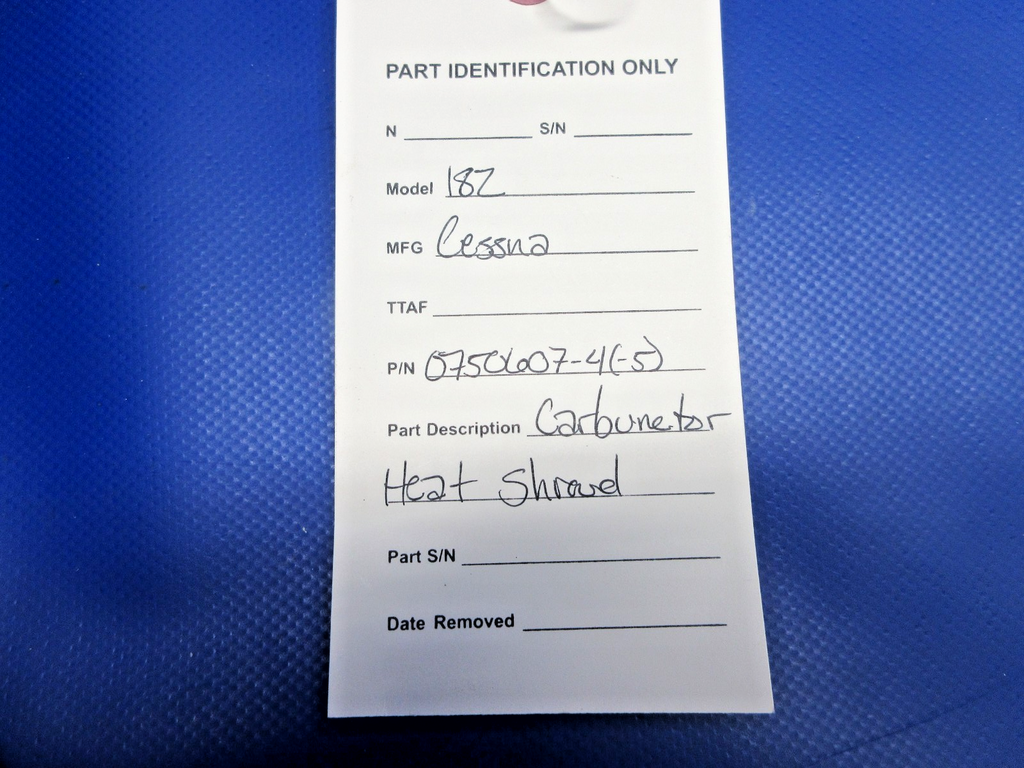 PART IDENTIFICATION ONLY
N ____________ S/N ____________
Model 182
MFG Cessna
TTAF ____________
P/N 0750607-4(-5)
Part Description Carburetor
Heat Shroud
Part S/N ____________
Date Removed ____________